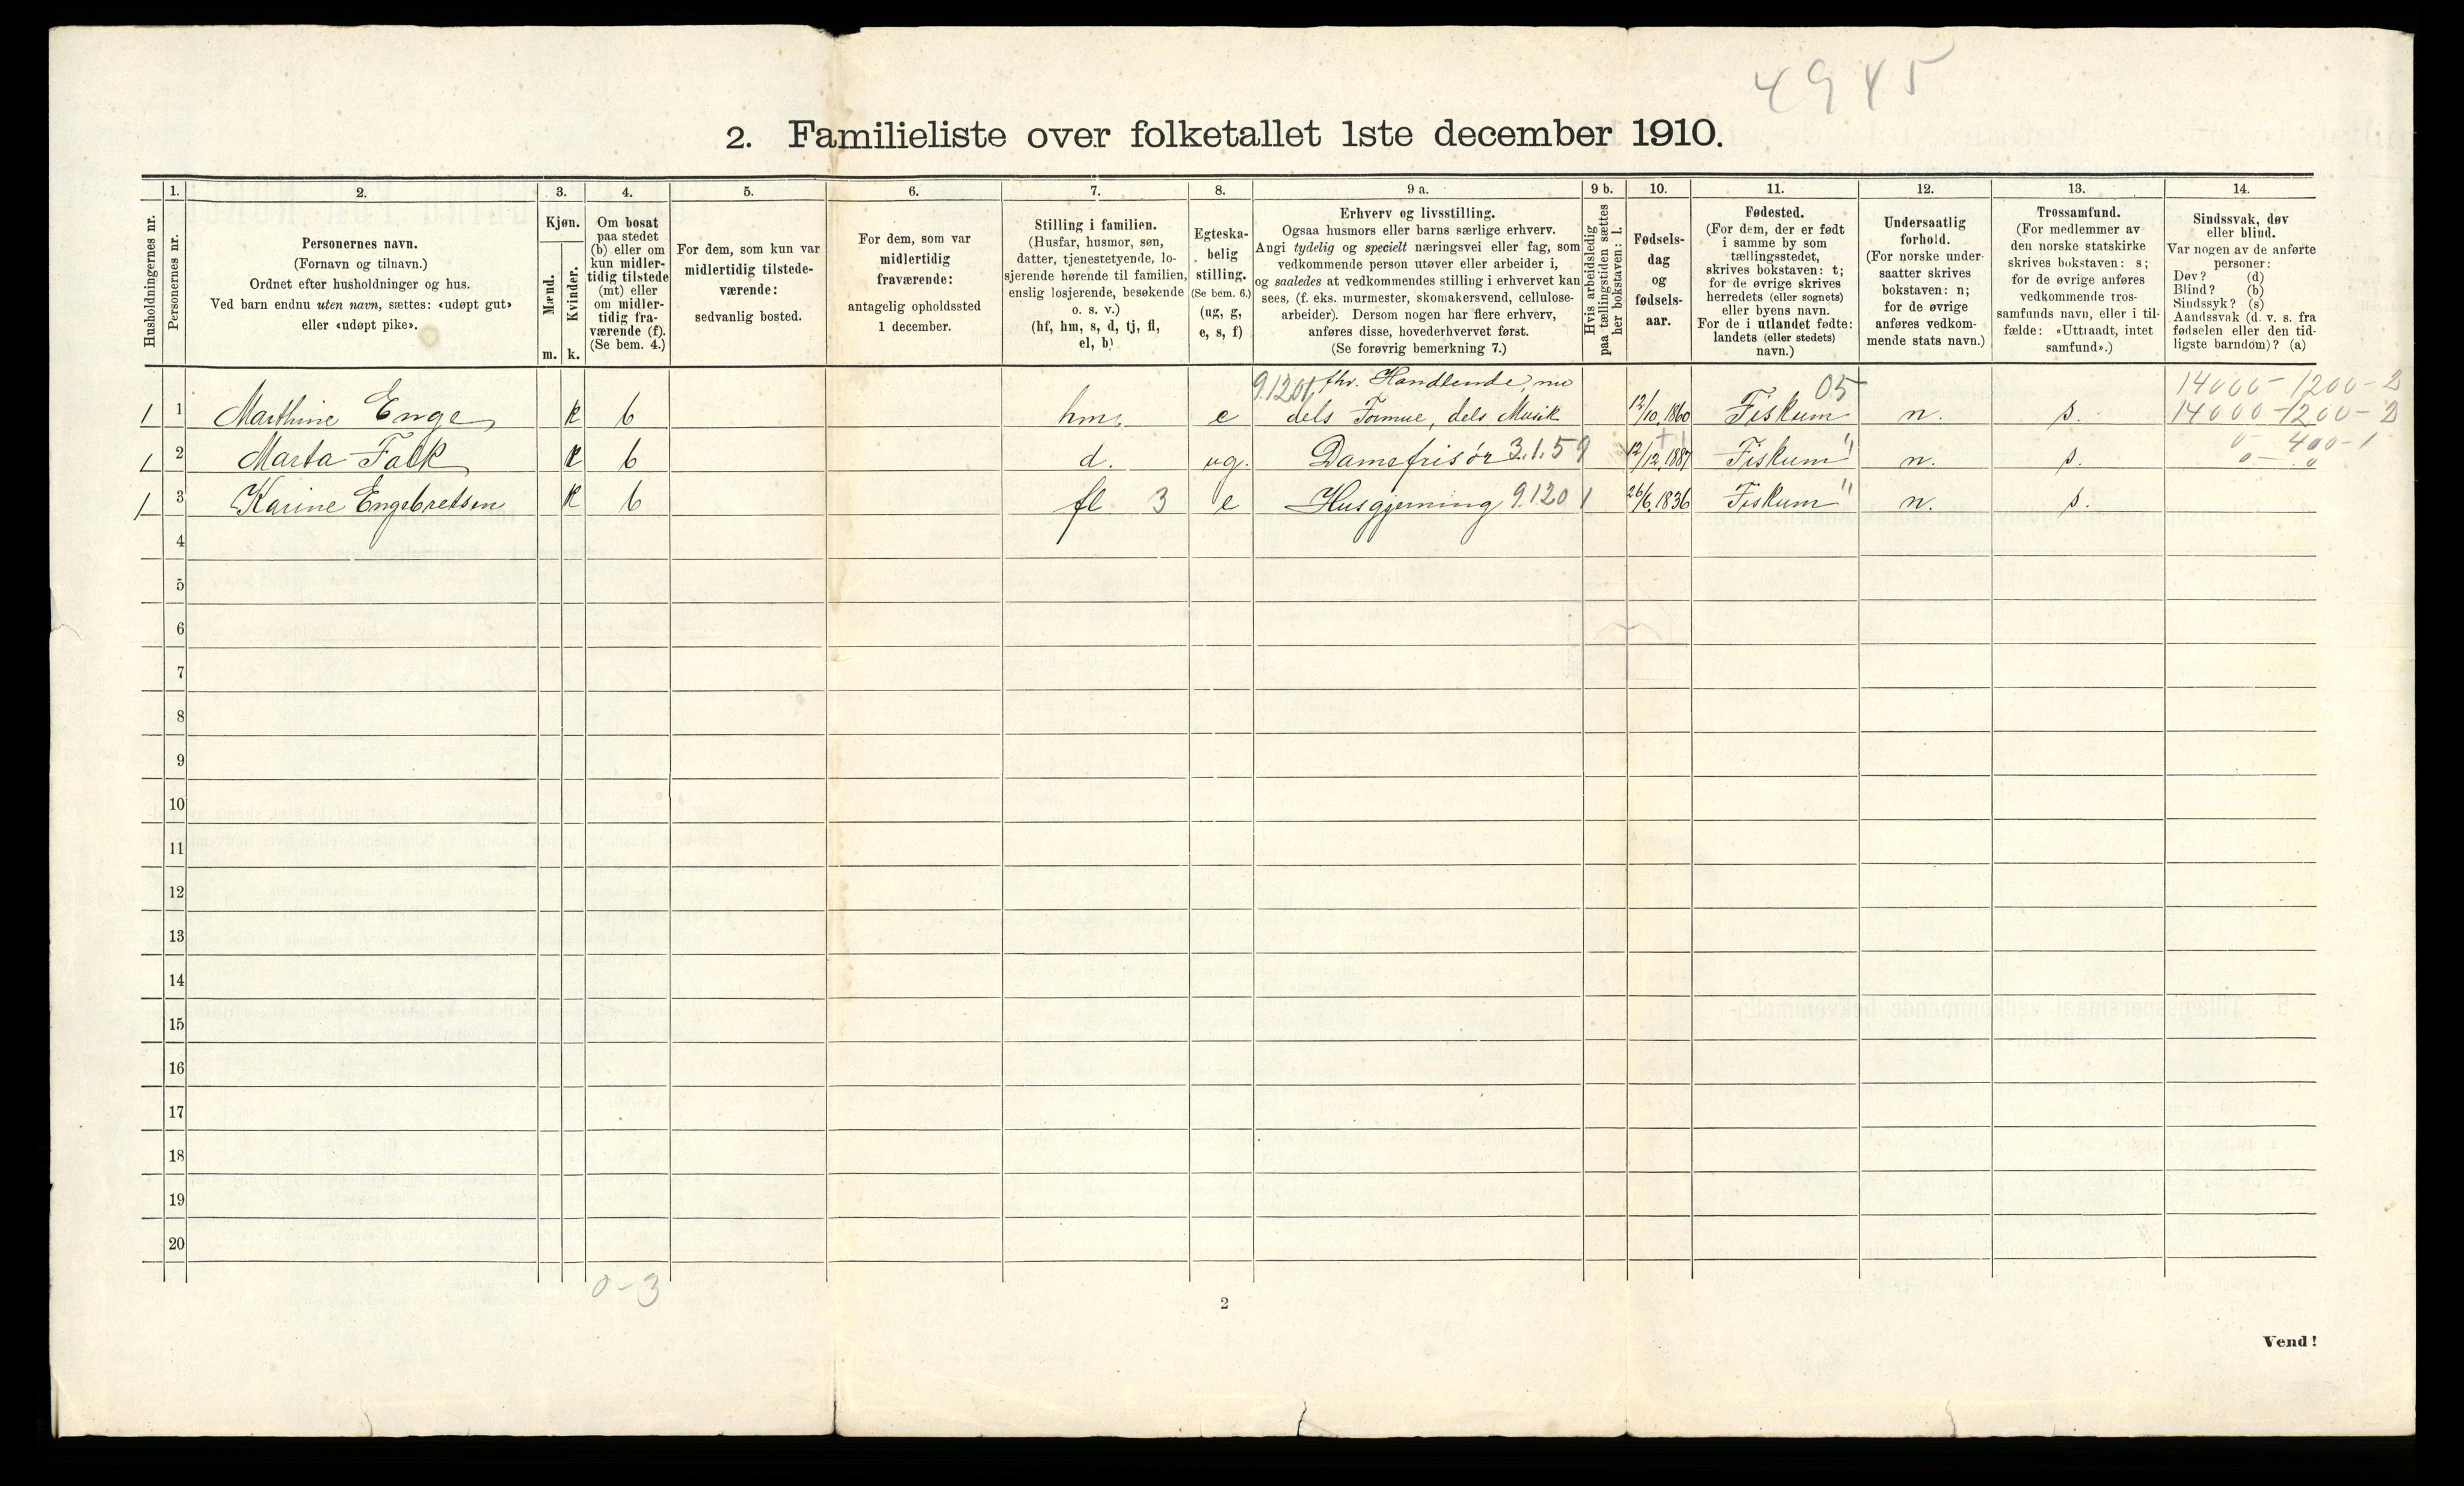 4945
2. Familieliste over folketallet 1ste december 1910.
Husholdningernes nr.
1.
Personernes nr.
2.
Personernes navn.
(Fornavn og tilnavn.)
Ordnet efter husholdninger og hus.
Ved barn endnu uten navn, sættes: «udøpt gut»
eller «udøpt pike».
3.
Kjøn.
Mænd.
Kvinder.
m. k.
4.
Om bosat
paa stedet
(b) eller om
kun midler-
tidig tilstede
(mt) eller
om midler-
tidig fra-
værende (f).
(Se bem. 4.)
5.
For dem, som kun var
midlertidig tilstede-
værende:
sedvanlig bosted.
6.
For dem, som var
midlertidig
fraværende:
antagelig opholdssted
1 december.
7.
Stilling i familien.
(Husfar, husmor, søn,
datter, tjenestetyende, lo-
sjerende hørende til familien,
enslig losjerende, besøkende
o. s. v.)
(hf, hm, s, d, tj, fl,
el, b)
8.
Egteska-
belig
stilling.
(Se bem. 6.)
(ug, g,
e, s, f)
9 a.
Erhverv og livsstilling.
Ogsaa husmors eller barns særlige erhverv.
Angi tydelig og specielt næringsvei eller fag, som
vedkommende person utøver eller arbeider i,
og saaledes at vedkommendes stilling i erhvervet kan
sees, (f. eks. murmester, skomakersvend, cellulose-
arbeider). Dersom nogen har flere erhverv,
anføres disse, hovederhvervet først.
(Se forøvrig bemerkning 7.)
9 b.
Hvis arbeidsledig
paa tællingstiden sættes
her bokstaven: l.
10.
Fødsels-
dag
og
fødsels-
aar.
11.
Fødested.
(For dem, der er født
i samme by som
tællingsstedet,
skrives bokstaven: t;
for de øvrige skrives
herredets (eller sognets)
eller byens navn.
For de i utlandet fødte:
landets (eller stedets)
navn.)
12.
Undersaatlig
forhold.
(For norske under-
saatter skrives
bokstaven: n;
for de øvrige
anføres vedkom-
mende stats navn.)
13.
Trossamfund.
(For medlemmer av
den norske statskirke
skrives bokstaven: s;
for de øvrige anføres
vedkommende tros-
samfunds navn, eller i til-
fælde: «Uttraadt, intet
samfund».)
14.
Sindssvak, døv
eller blind.
Var nogen av de anførte
personer:
Døv? (d)
Blind? (b)
Sindssyk? (s)
Aandssvak (d. v. s. fra
fødselen eller den tid-
ligste barndom)? (a)
9.1201 fhv. Handlende, nu 05 14000-1200-2
1 1 Marthine Enge k b hm. e dels Formue, dels Musik 12/10 1860 Fiskum n. s. 14000-1200-2
0-400-1
1 2 Marta Falk k b d. ug. Damefrisør 3.1.59 12/12 1887 Fiskum " n. s. 0-0
1 3 Karine Engebretsen k b fl 3 e Husgjerning 9.1201 26/6 1836 Fiskum " n. s.
4
5
6
7
8
9
10
11
12
13
14
15
16
17
18
19
20
0-3
2
Vend!